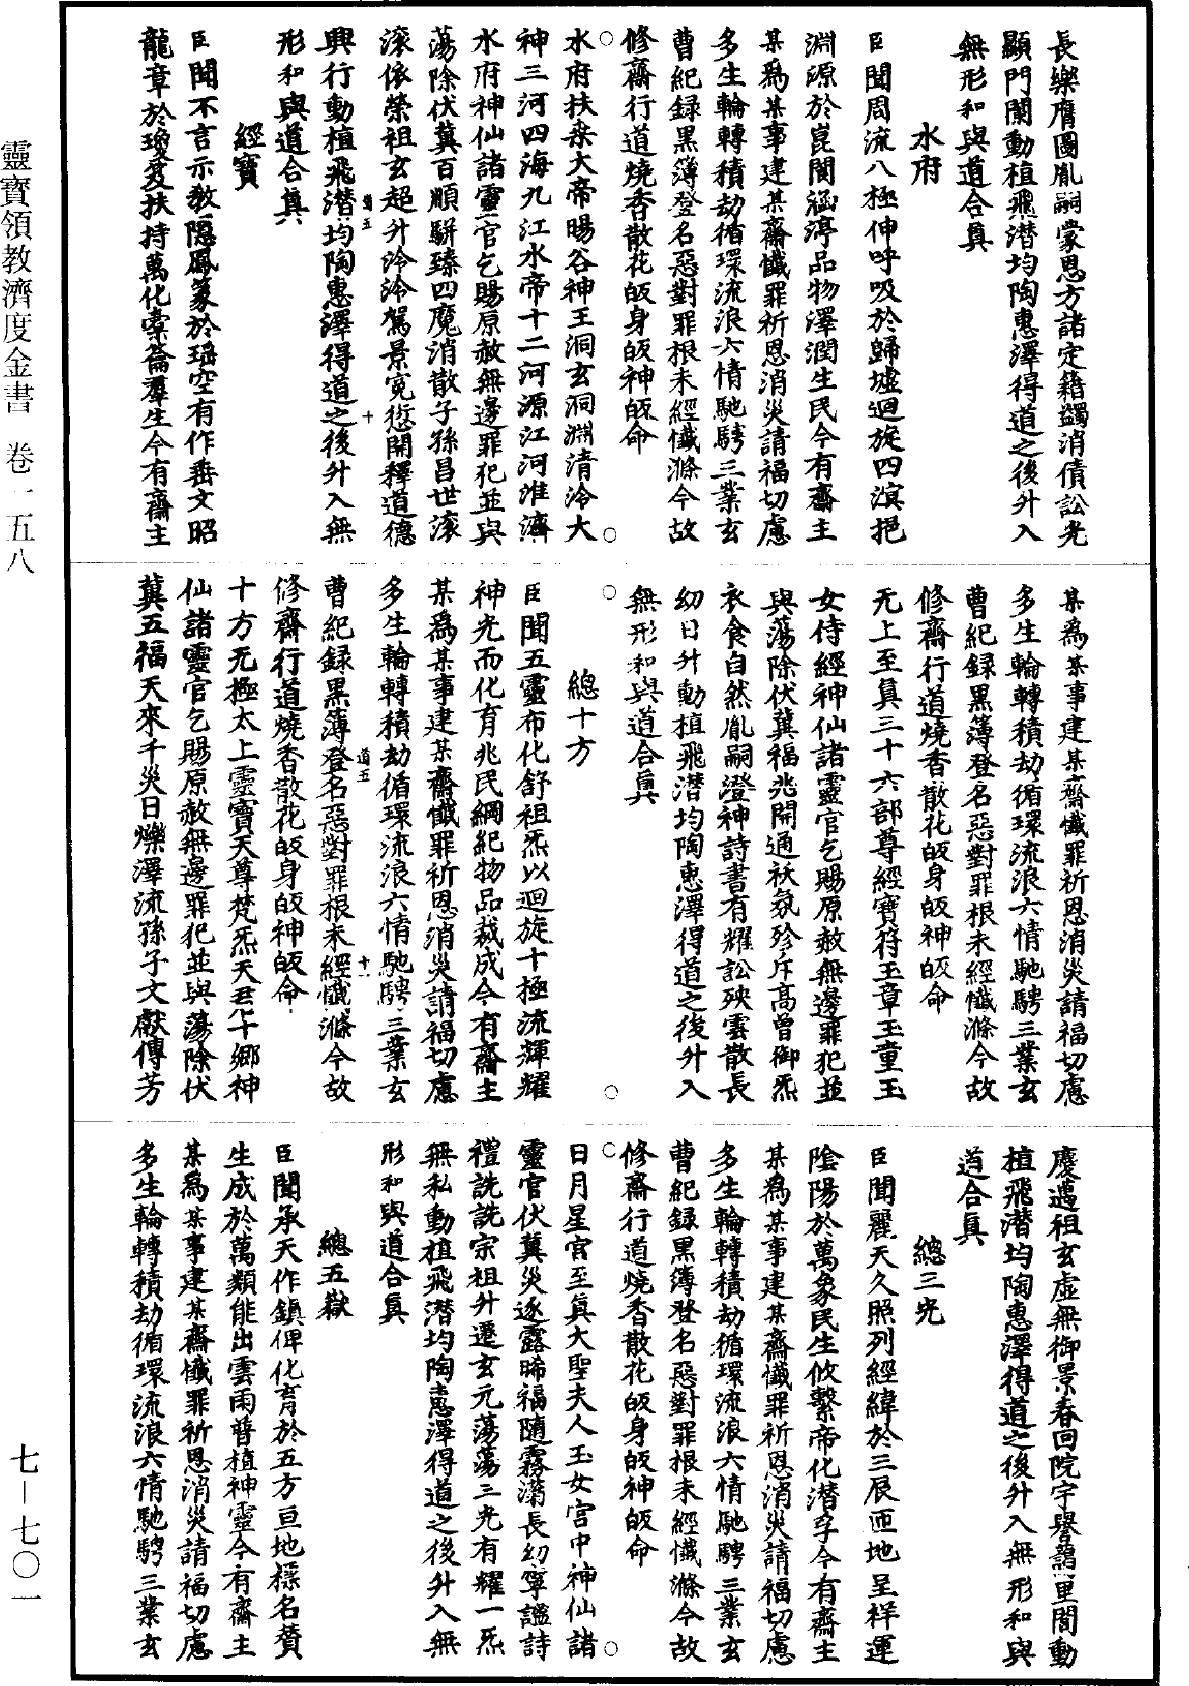 長樂膺圖胤嗣蒙恩方諸定籍蠲消債訟光
顯門闌動植飛潛均陶惠澤得道之後升入
無形和與道合真
水府
臣聞周流八極伸呼吸於歸墟迴旋四溟挹
淵源於崑閬涵渟品物澤潤生民今有齋主
某爲某事建某齋懺罪祈恩消災請福切慮
多生輪轉積劫循環流浪六情馳騁三業玄
曹紀録黑簿登名惡對罪根未經懺滌今故
修齋行道燒香散花皈身皈神皈命
水府扶桑大帝暘谷神王洞玄洞淵清泠大
神三河四海九江水帝十二河源江河淮濟
水府神仙諸靈官乞賜原赦無邊罪犯並與
蕩除伏冀百順駢臻四魔消散子孫昌世滚
滚依榮祖玄超升泠泠駕景寃愆開釋道德
興行動植飛潛均陶惠澤得道之後升入無
形和與道合真
經寶
臣聞不言示教隱鳳篆於瑶空有作垂文昭
龍章於瓊笈扶持萬化橐籥羣生今有齋主
某爲某事建某齋懺罪祈恩消災請福切慮
多生輪轉積劫循環流浪六情馳騁三業玄
曹紀録黑簿登名惡對罪根未經懺滌今故
修齋行道燒香散花皈身皈神皈命
无上至真三十六部尊經寶符玉章玉童玉
女侍經神仙諸靈官乞賜原赦無邊罪犯並
與蕩除伏冀福兆開通祅氛殄斥高曾御炁
衣食自然胤嗣澄神詩書有耀訟殃雲散長
幼日升動植飛潛均陶惠澤得道之後升入
無形和與道合真
總十方
臣聞五靈布化舒祖炁以迴旋十極流輝耀
神光而化育兆民綱紀物品裁成今有齋主
某爲某事建某齋懺罪祈恩消災請福切慮
多生輪轉積劫循環流浪六情馳騁三業玄
曹紀録黑簿登名惡對罪根未經懺滌今故
修齋行道燒香散花皈身皈神皈命
十方无極太上靈寶天尊梵炁天君十鄉神
仙諸靈官乞賜原赦無邊罪犯並與蕩除伏
冀五福天來千災日爍澤流孫子文獻傳芳
慶邁祖玄虛無御景春回院宇譽藹里閭動
植飛潛均陶惠澤得道之後升入無形和與
道合真
總三光
臣聞麗天久照列經緯於三辰匝地呈祥運
陰陽於萬象民生攸繫帝化潛孚今有齋主
某爲某事建某齋懺罪祈恩消災請福切慮
多生輪轉積劫循環流浪六情馳騁三業玄
曹紀録黑簿登名惡對罪根未經懺滌今故
修齋行道燒香散花皈身皈神皈命
日月星官至真大聖夫人玉女宫中神仙諸
靈官伏冀災逐露晞福隨霧滃長幼寧謐詩
禮詵詵宗祖升遷玄元蕩蕩三光有耀一炁
無私動植飛潛均陶惠澤得道之後升入無
形和與道合真
總五嶽
臣聞承天作鎮俾化育於五方亘地標名賛
生成於萬類能出雲雨普植神靈今有齋主
某爲某事建某齋懺罪祈恩消災請福切慮
多生輪轉積劫循環流浪六情馳騁三業玄
道五
十
道五
十一
靈寶領教濟度金書 卷一五八
七—七〇一